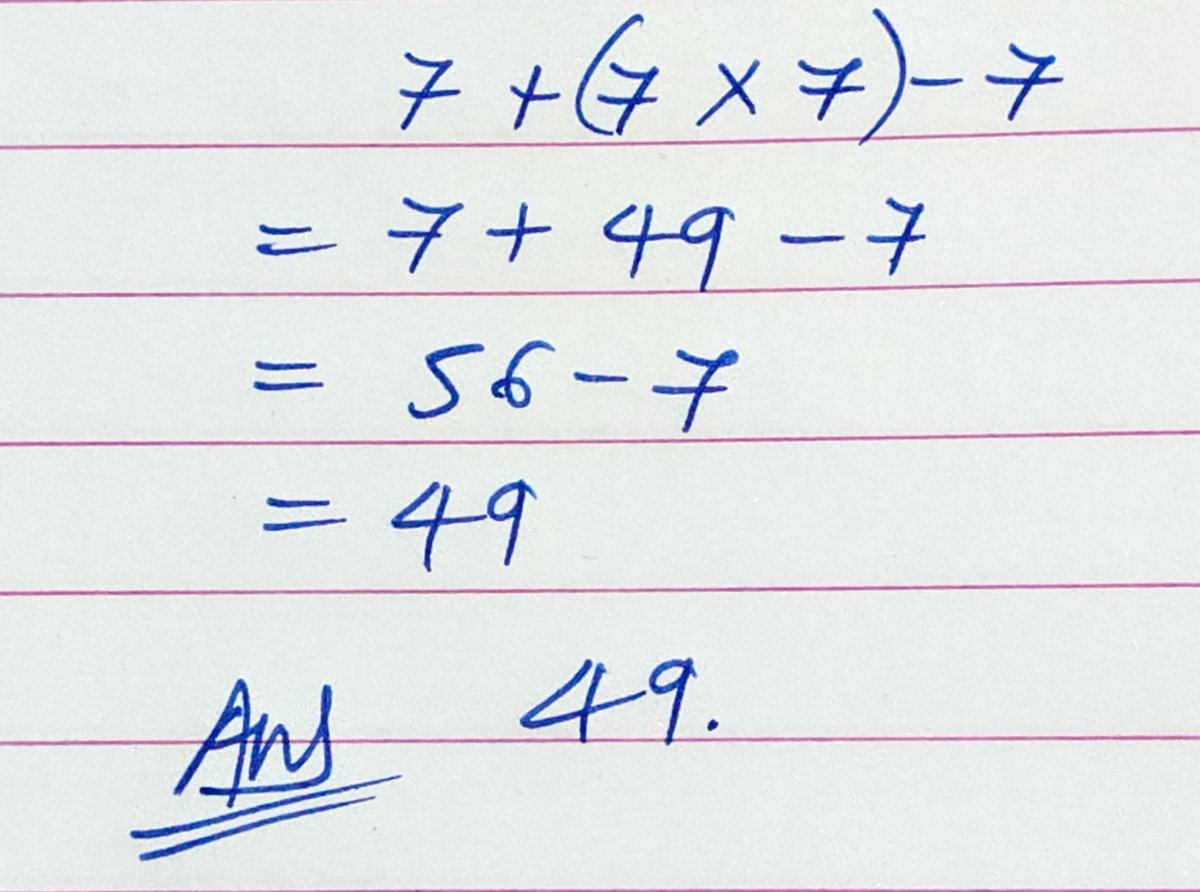 7 + (7 × 7) - 7
= 7 + 49 - 7
= 56 - 7
= 49
Ans 49.